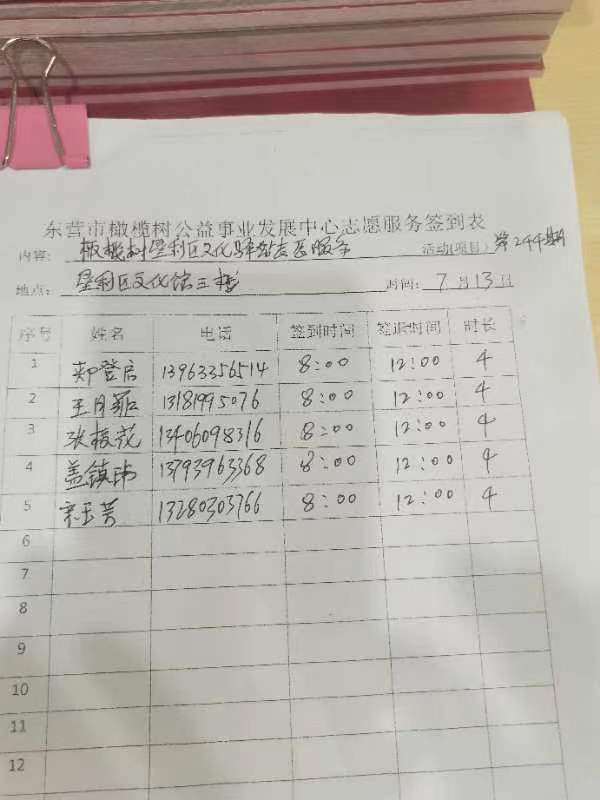 东营市橄榄树公益事业发展中心志愿服务签到表
内容: 橄榄树垦利区文化驿站志愿服务 活动(项目) 第244期
地点: 垦利区文化馆三楼 时间: 7月13日
序号 姓名 电话 签到时间 签退时间 时长
1 郏登启 13963356514 8:00 12:00 4
2 王月 13181995076 8:00 12:00 4
3 张桂花 13406098316 8:00 12:00 4
4 盖镇玮 13793963368 8:00 12:00 4
5 宋玉芳 13280303766 8:00 12:00 4
6
7
8
9
10
11
12